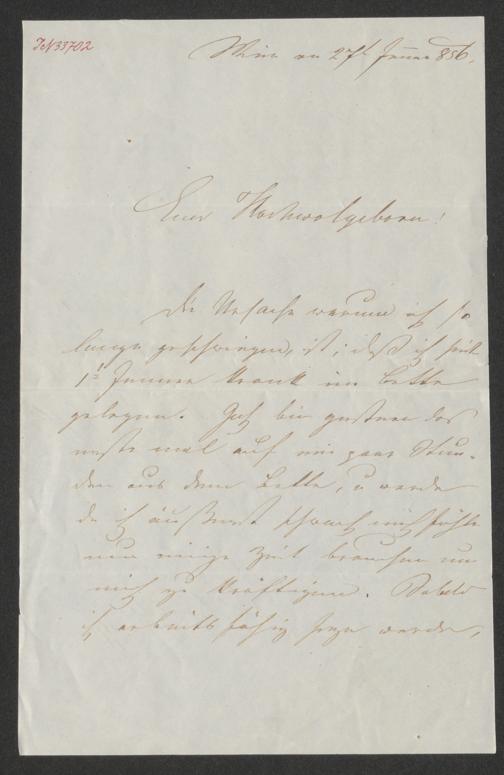 IN 33702
Wien am 27t Jenner 856.
Euer Hochwolgeboren!
Die Ursache warum ich so
lange geschwiegen, ist, daß ich seit
1t Jenner krank im Bette
gelegen. Ich bin gestern das
erste mal auf ein paar Stun-
den aus dem Bette, u werde
da ich äußerst schwach mich fühle
nun einige Zeit brauchen um
mich zu kräftigen. Sobald
ich arbeitsfähig seyn werde,